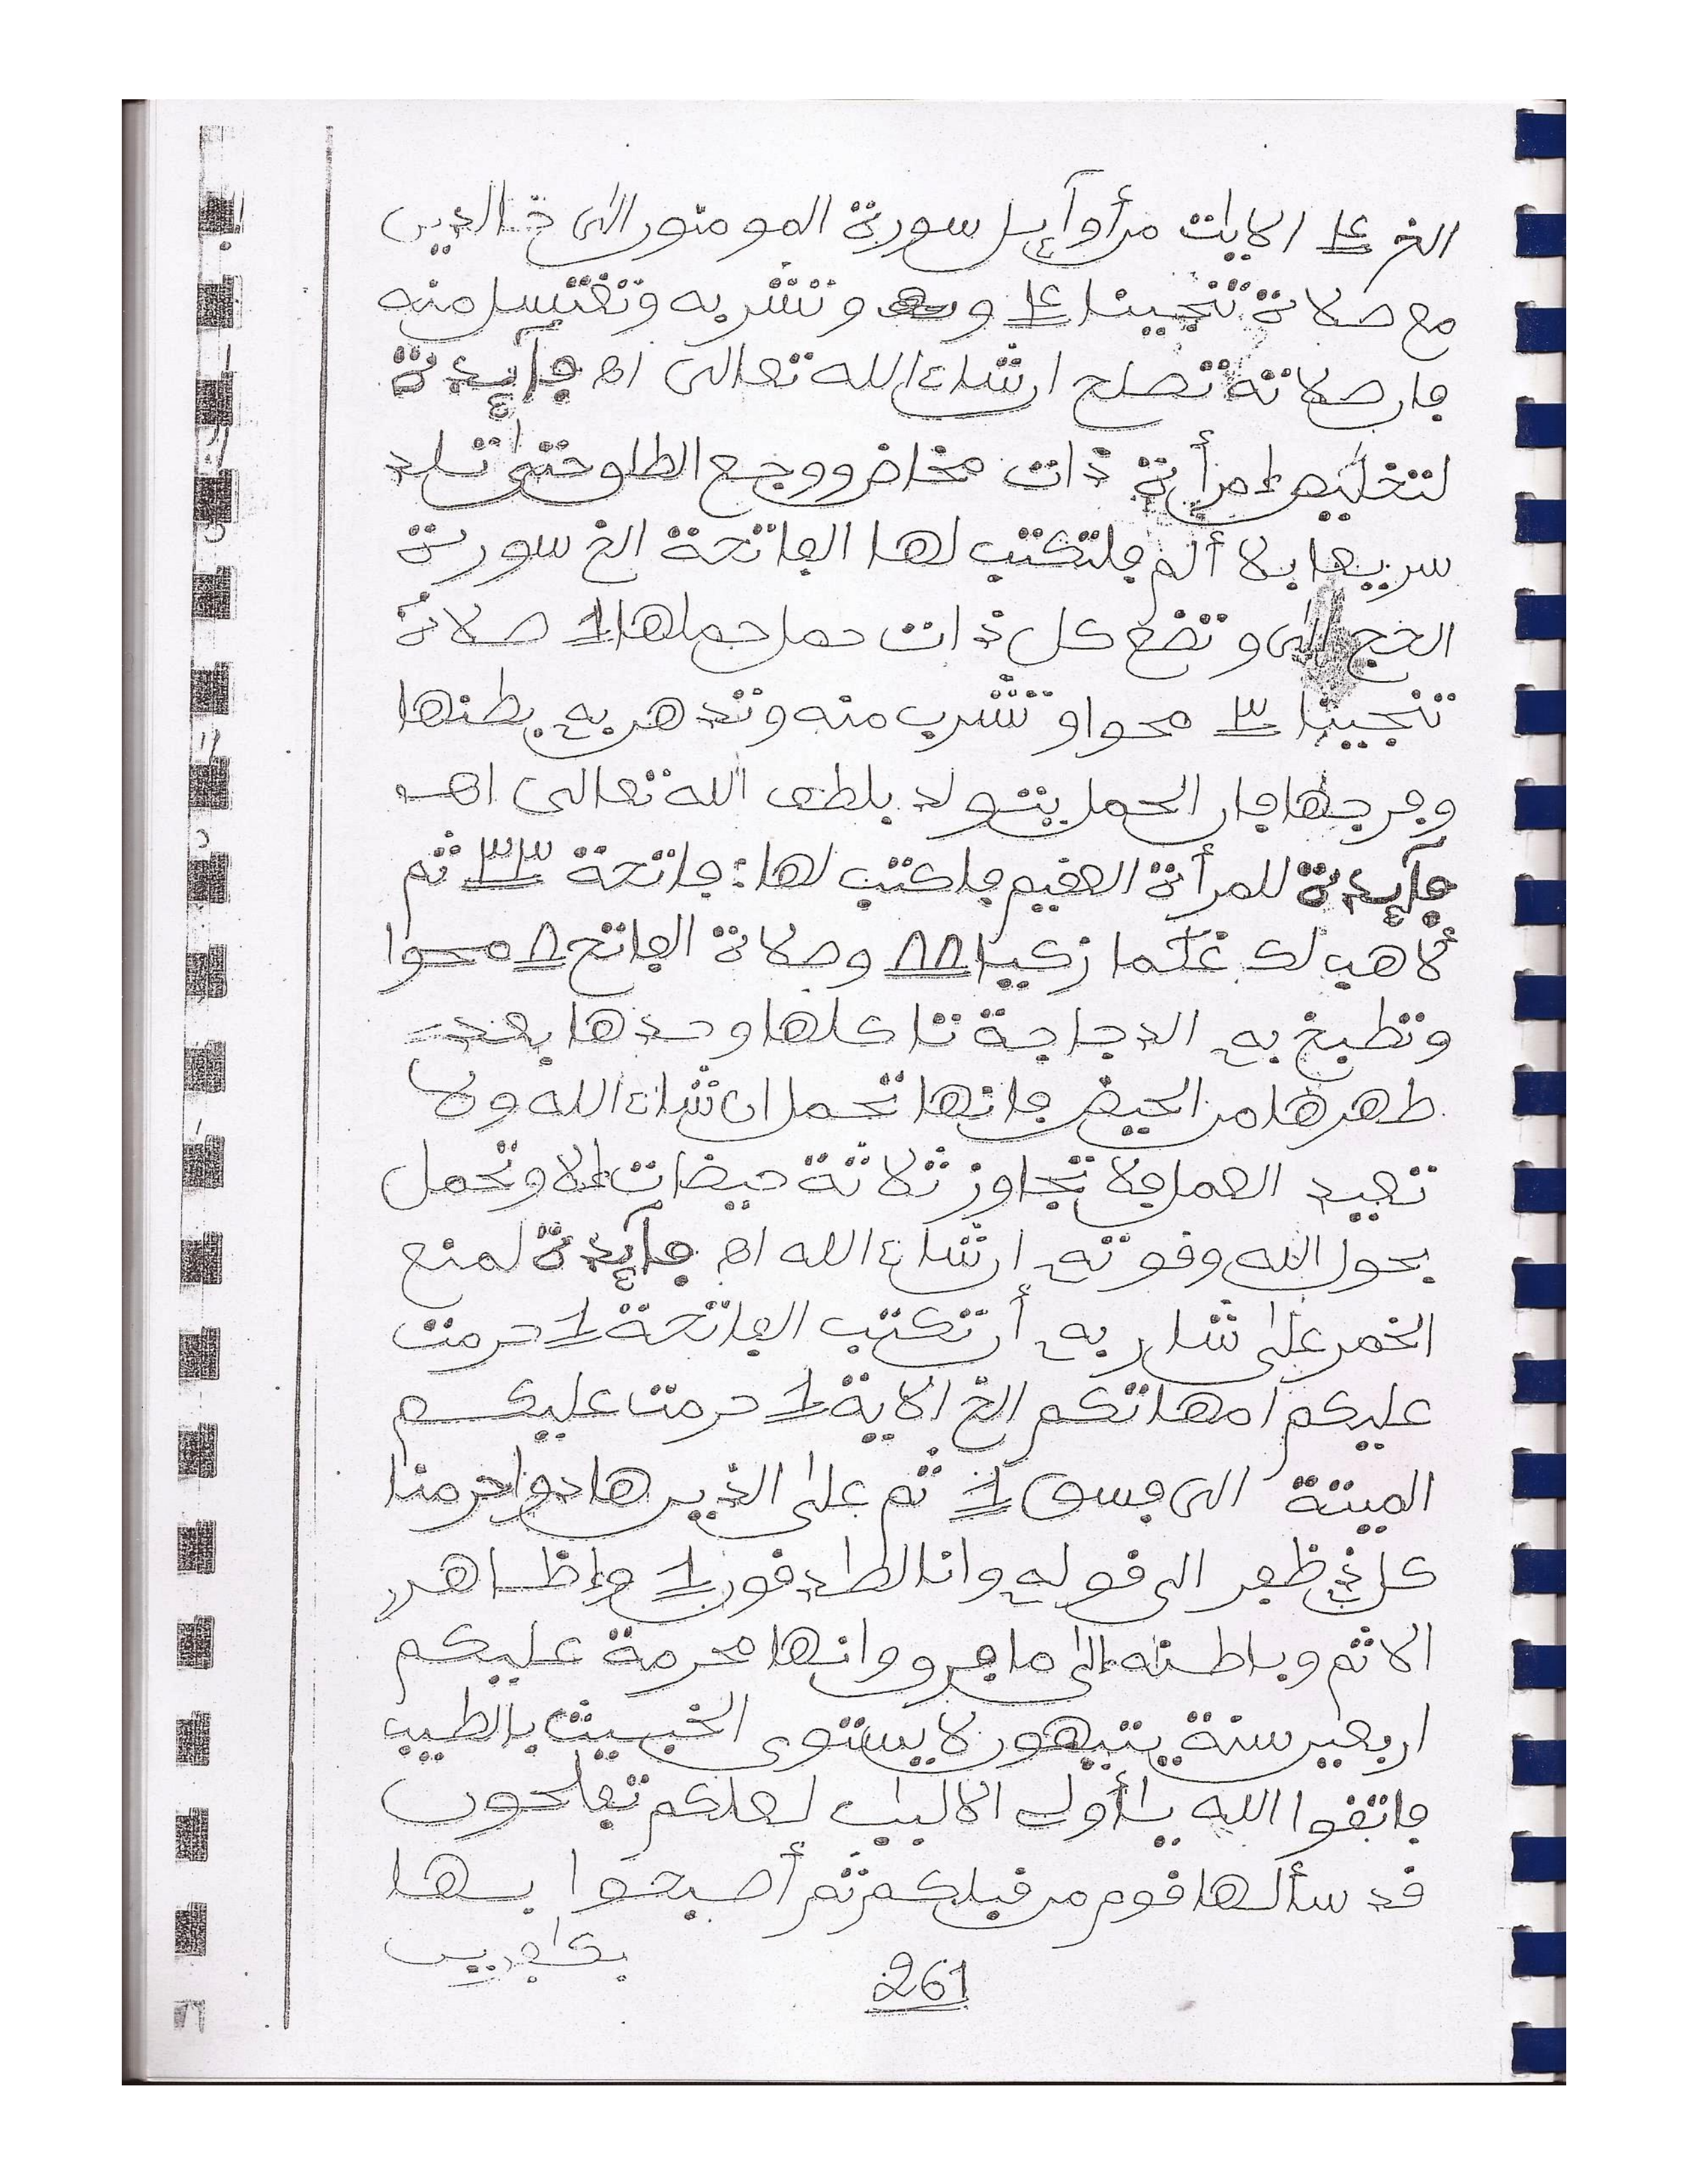 الخ ٤ الايات من أوآيل سورة المومنون الى خالدين
مع صلاة تنجينا ٤ و وتشربه وتغتسل منه
فإن صلاته تصلح ان شاء الله تعالى اه فآيدة
لتخليص إمرأة ذات مخاض ووجع الطلوحتى تلد
سريعا بلا ألم فلتكتب لها الفاتحة الخ سورة
الحج الى وتضع كل ذات حمل حملها 1 صلاة
تنجينا ٣ محوا وتشرب منه وتدهن به بطنها
وفرجها فان الحمل يتولد بلطف الله تعالى اهـ
فآيدة للمرأة العقيم فاكتب لها: فاتحة ٣٣ ثم
لأهب لك غلما زكيا ٨٨ وصلاة الفاتح ٨ محوا
وتطبخ به الدجاجة تاكلها وحدها بعد
طهرها من الحيض فانها تحمل ان شاء الله ولا
تعيد العمل فلا تجاوز ثلاثة حيضات إلا وتحمل
بحول الله وقوته ان شاء الله اه فآيدة لمنع
الخمر على شاربه أن تكتب الفاتحة 1 حرمت
عليكم امهاتكم الخ الاية 1 حرمت عليكم
الميتة الى فسق 1 ثم على الذين هادوا حرمنا
كل ذي ظفر الى قوله وانا لصادقون 1 وإظاهر
الاثم وباطنه إلى وانها محرمة عليكم
اربعين سنة يتيهون لا يستوى الخبيث بالطيب
فاتقوا الله يأولي الالباب لعلكم تفلحون
قد سألها قوم من قبلكم ثم أصبحوا بها
بكافرين
261